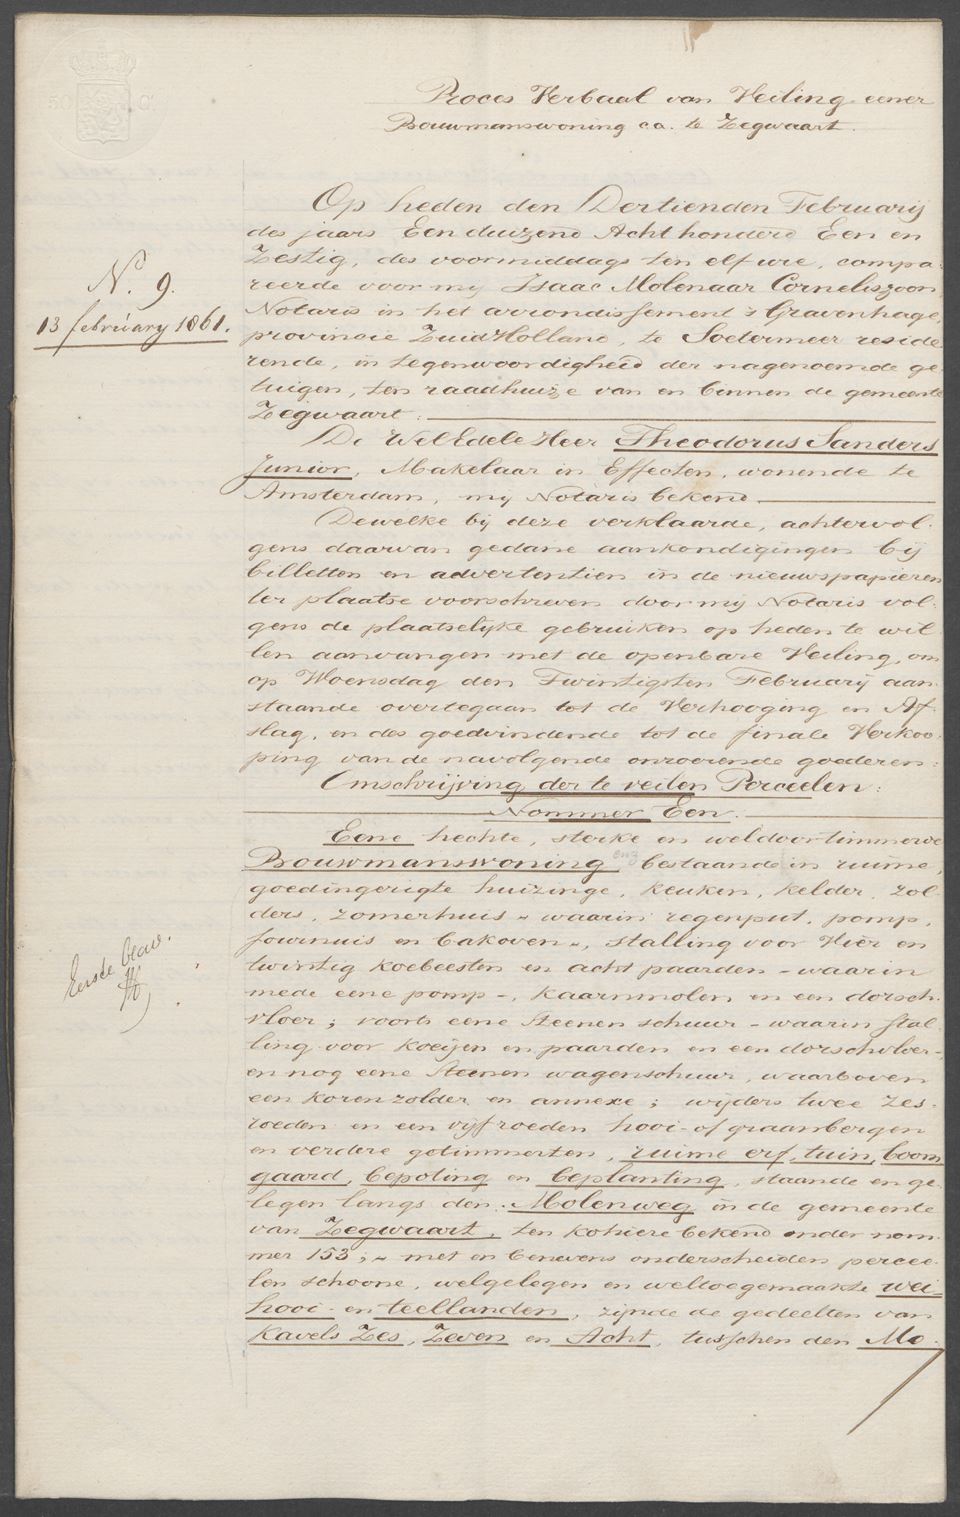 50 C.
Proces Verbaal van Veiling eener
Bouwmanswoning c.a. te Zegwaart.
N. 9.
13 february 1861.
Op heden den Dertienden Februarij
des jaars Eenduizend Acht honderd Een en
Zestig, des voormiddags ten elf ure, compa-
reerde voor mij Isaac Molenaar Corneliszoon
Notaris in het arrondissement 's Gravenhage,
provincie Zuid Holland, te Soetermeer reside-
rende, in tegenwoordigheid der nagenoemde ge-
tuigen, ten raadhuize van en binnen de gemeente
Zegwaart:
De WelEdele Heer Theodorus Sanders
Junior, Makelaar in Effecten, wonende te
Amsterdam, mij Notaris bekend.
Dewelke bij deze verklaarde, achtervol-
gens daarvan gedane aankondigingen bij
billetten en advertentien in de nieuwspapieren
ter plaatse voorschreven door mij Notaris vol-
gens de plaatselijke gebruiken op heden te wil-
len aanvangen met de openbare Veiling, om
op Woensdag den Twintigsten Februarij aan-
staande overtegaan tot de Verhooging en Af-
slag, en des goedvindende tot de finale Verkoo-
ping van de navolgende onroerende goederen:
Omschrijving der te veilen Perceelen:
Nommer Een.
Eene hechte, sterke en weldoortimmerde
Bouwmanswoning enz bestaande in ruime,
goedingerigte huizinge, keuken, kelder, zol-
ders, zomerhuis - waarin regenput, pomp,
fournuis en bakoven -, stalling voor Vier en
twintig koebeesten en acht paarden - waarin
mede eene pomp -, kaarnmolen en een dorsch-
vloer; voorts eene Steenen schuur - waarin stal-
ling voor koeijen en paarden en een dorschvloer -
en nog eene Steenen wagenschuur, waarboven
een korenzolder en annexe; wijders twee zes-
roeden en een vijfroeden hooi- of graanbergen
en verdere getimmerten, ruime erf, tuin, boom-
gaard, bepoting en beplanting, staande en ge-
legen langs den Molenweg in de gemeente
van Zegwaart, ten kohiere bekend onder nom-
mer 153; - met en benevens onderscheiden percee-
len schoone, welgelegen en weltoegemaakte wei-
hooi- en teellanden, zijnde de gedeelten van
Kavels Zes, Zeven en Acht, tusschen den Mo-
Eerste blad.